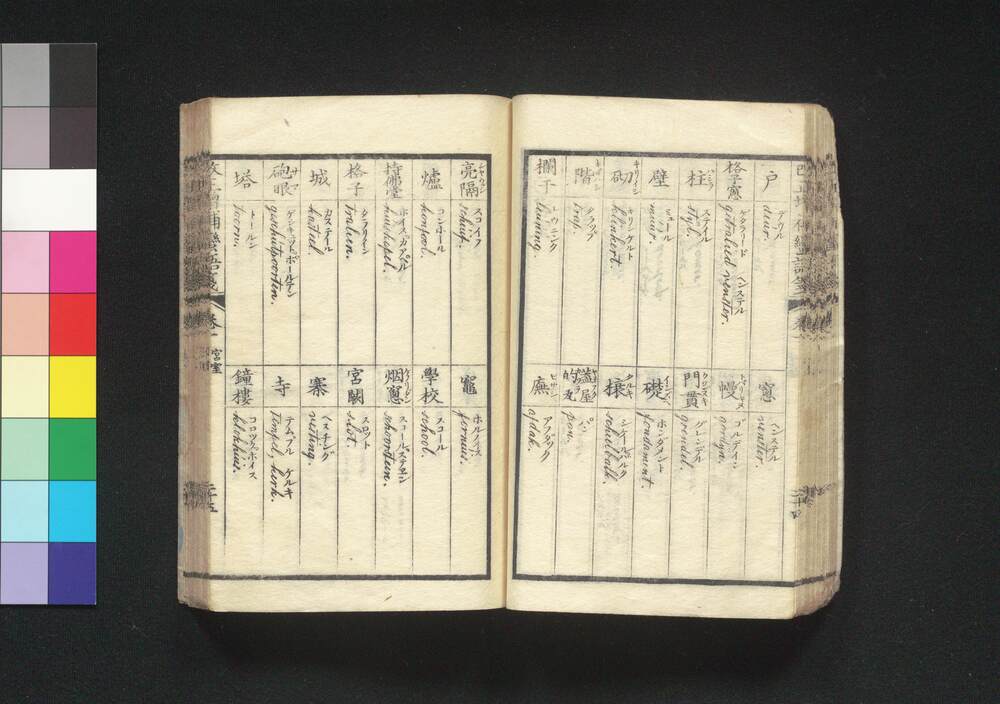 戸
デウル
deur.
格子窓
ゲタラリード ヘンステル
getralied venster.
柱
ステイル
styl.
壁
ミュール
muur.
砌
キリンケルト
klinkert.
階
タラップ
trap.
欄干
レウニング
leuning.
窓
ヘンステル
venster.
幔
ゴルデイン
gordyn.
門貫
グレンデル
grendel.
礎
ホンダメント
fondament.
攘
schuelbalk.
葢屋的瓦
パン
pan.
廡
アフダック
afdak.
亮隔
スコイフ
schuif.
爐
コンホール
konfool.
持佛堂
ホイスカアペル
huiskapel.
格子
タラリーン
tralien.
城
カステイル
kastiel.
砲眼
ゲシキュットポールテン
geschutpoorten.
塔
トールン
toorn.
竈
ホルノイス
fornuis.
學校
スコール
school.
烟窻
スコールステエン
schoorsteen.
宮闕
スロット
slot.
寨
ヘスチング
vesting.
寺
テムプル ケルキ
Tempel, kerk.
鐘樓
コロックホイス
klokhuis.
宮室
二十五